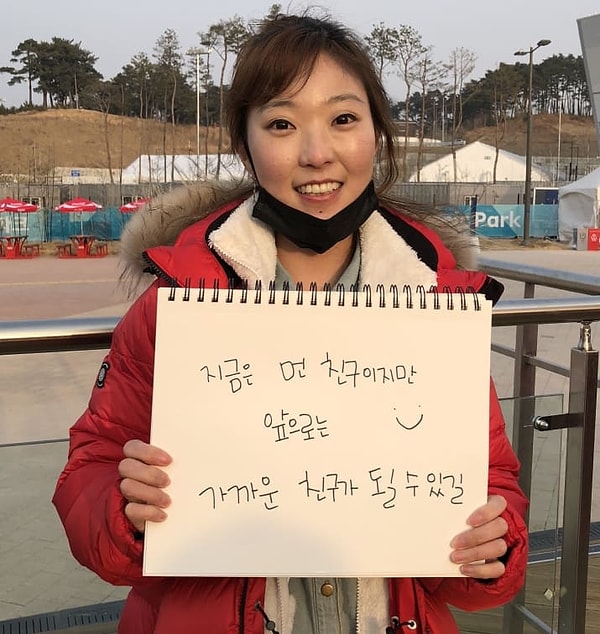 Park
지금은 먼 친구이지만
앞으로는
가까운 친구가 될 수 있길